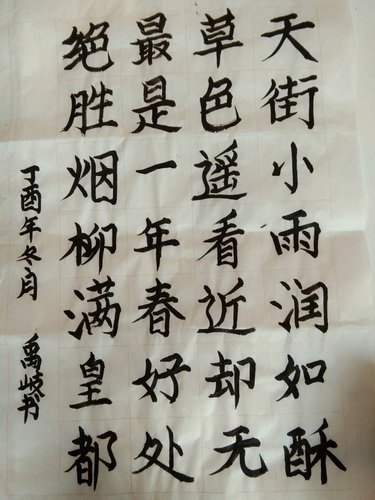 天街小雨润如酥
草色遥看近却无
最是一年春好处
绝胜烟柳满皇都
丁酉年冬月 禹岐书